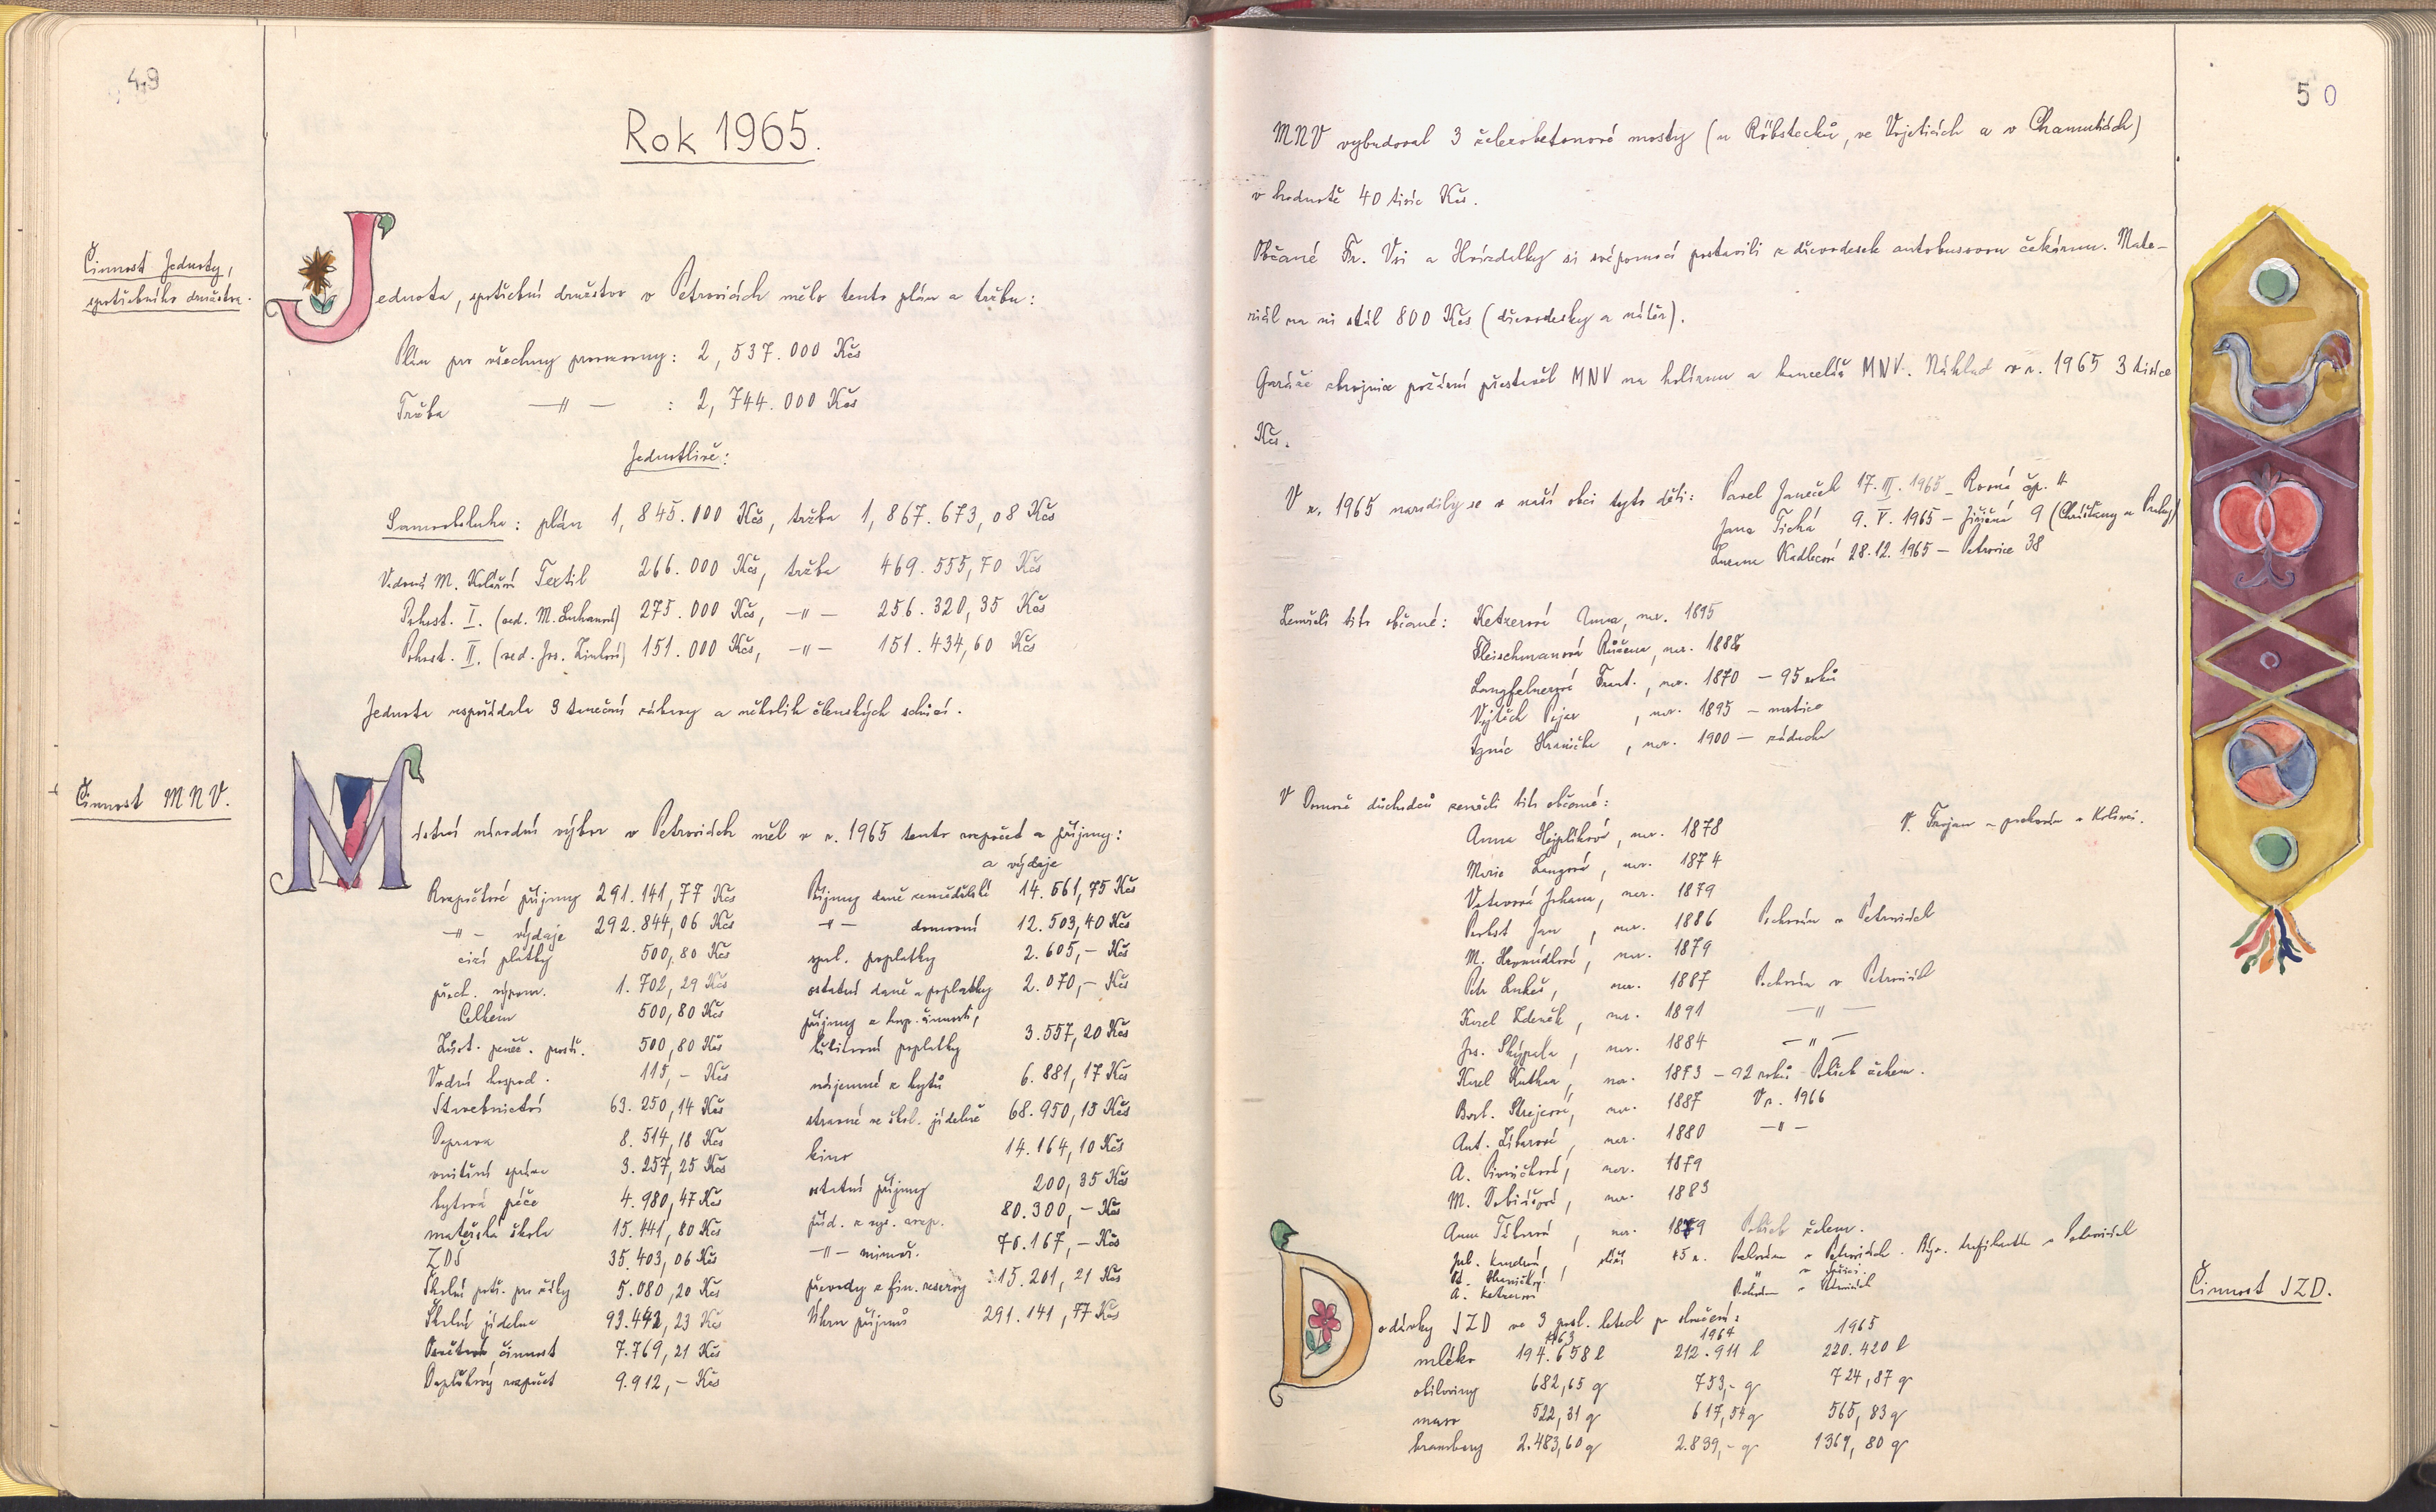 49
Rok 1965.
Činnost Jednoty,
spotřebního družstva.
Jednota, spotřební družstvo v Petrovicích mělo tento plán a tržbu:
Plán pro všechny provozovny: 2,537.000 Kčs
Tržba —〃— : 2,744.000 Kčs
Jednotlivě:
Samoobsluha: plán 1,845.000 Kčs, tržba 1,867.673,08 Kčs
Vedoucí M. Kolářová Textil 266.000 Kčs, tržba 469.555,70 Kčs
Pohost. I. (ved. M. Luhanová) 275.000 Kčs, —〃— 256.320,35 Kčs
Pohost. II. (ved. Jos.) 151.000 Kčs, —〃— 151.434,60 Kčs
Jednota uspořádala 3 taneční zábavy a několik členských schůzí.
Činnost MNV.
Místní národní výbor v Petrovicích měl v r. 1965 tento rozpočet a příjmy:
a výdaje
Rozpočtové příjmy 291.141,77 Kčs Příjmy daně zemědělské 14.661,75 Kčs
—〃— výdaje 292.844,06 Kčs —〃— domovní 12.503,40 Kčs
cizí platby 500,80 Kčs spr. poplatky 2.605,— Kčs
přech. výpom. 1.702,29 Kčs ostatní daně a poplatky 2.070,— Kčs
Celkem 500,80 Kčs příjmy z hosp. činnosti,
Zůst. peněž. prostř. 500,80 Kčs kulturní poplatky 3.557,20 Kčs
Vodní hospod. 115,— Kčs nájemné z bytů 6.881,17 Kčs
Stavebnictví 63.250,14 Kčs stravné ve škol. jídelně 68.950,15 Kčs
Doprava 8.514,18 Kčs kino 14.164,10 Kčs
vnitřní správa 3.257,25 Kčs ostatní příjmy 200,35 Kčs
bytová péče 4.980,47 Kčs příd. z vyš. rozp. 80.300,— Kčs
mateřská škola 15.441,80 Kčs —〃— mimoř. 70.167,— Kčs
ZDŠ 35.403,06 Kčs převody z fin. rezervy 15.201,21 Kčs
Školní potř. pro žáky 5.080,20 Kčs Úhrn příjmů 291.141,77 Kčs
Školní jídelna 93.442,23 Kčs
Osvětová činnost 7.769,21 Kčs
Doplňkový rozpočet 9.912,— Kčs
50
MNV vybudoval 3 železobetonové mosty (u Röbstecků, ve Vojeticích a v Chamuticích)
v hodnotě 40 tisíc Kčs.
Občané Fr. Vsi a Hvízdalky si svépomocí postavili z dřevodesek autobusovou čekárnu. Mate-
riál na ni stál 800 Kčs (dřevodesky a nátěr).
Garáže zbrojnice požární přestavěl MNV na holírnu a kancelář MNV. Náklad v r. 1965 3 tisíce
Kčs.
V r. 1965 narodily se v naší obci tyto děti: Pavel Janeček 17. III. 1965 – Rovná čp. 11
Jana Tichá 9. V. 1965 – Jiřičná 9 (Chrášťany u Prahy)
Zuzana Kadlecová 28.12. 1965 – Petrovice 38
Zemřeli tito občané: Ketzerová Anna, nar. 1895
Fleischmanová Růžena, nar. 1888
Langfelnerová Frant., nar. 1870 – 95 roků
Vojtěch Pojar, nar. 1895 – mrtvice
Ignác Hranička, nar. 1900 – záducha
V Domově důchodců zemřeli tito občané:
V. Trojan – pochován v Kolinci.
Anna Hejplíková, nar. 1878
Marie Langová, nar. 1874
Votavová Johana, nar. 1879
Perbst Jan, nar. 1886 Pochován v Petrovicích
M. Hromádková, nar. 1879
Petr Lukeš, nar. 1887 Pochován v Petrovicích
Karel Zdeněk, nar. 1891 —〃—
Jos. Skýpala, nar. 1884 —〃—
Karel Kuthan, nar. 1873 – 92 roků Pohřeb žehem.
Barb. Strejcová, nar. 1887 V r. 1966
Ant. Líbarová, nar. 1880 —〃—
A. Pivničková, nar. 1879
M. Tobiášová, nar. 1883
Anna Táborová, nar. 1879 Pohřeb žehem.
Činnost JZD.
Dodávky JZD ve 3 posl. letech po sloučení:
1963 1964 1965
mléko 194.658 l 212.911 l 220.420 l
obiloviny 682,65 q 753,— q 724,87 q
maso 522,31 q 617,54 q 565,83 q
brambory 2.483,60 q 2.839,— q 1369,80 q